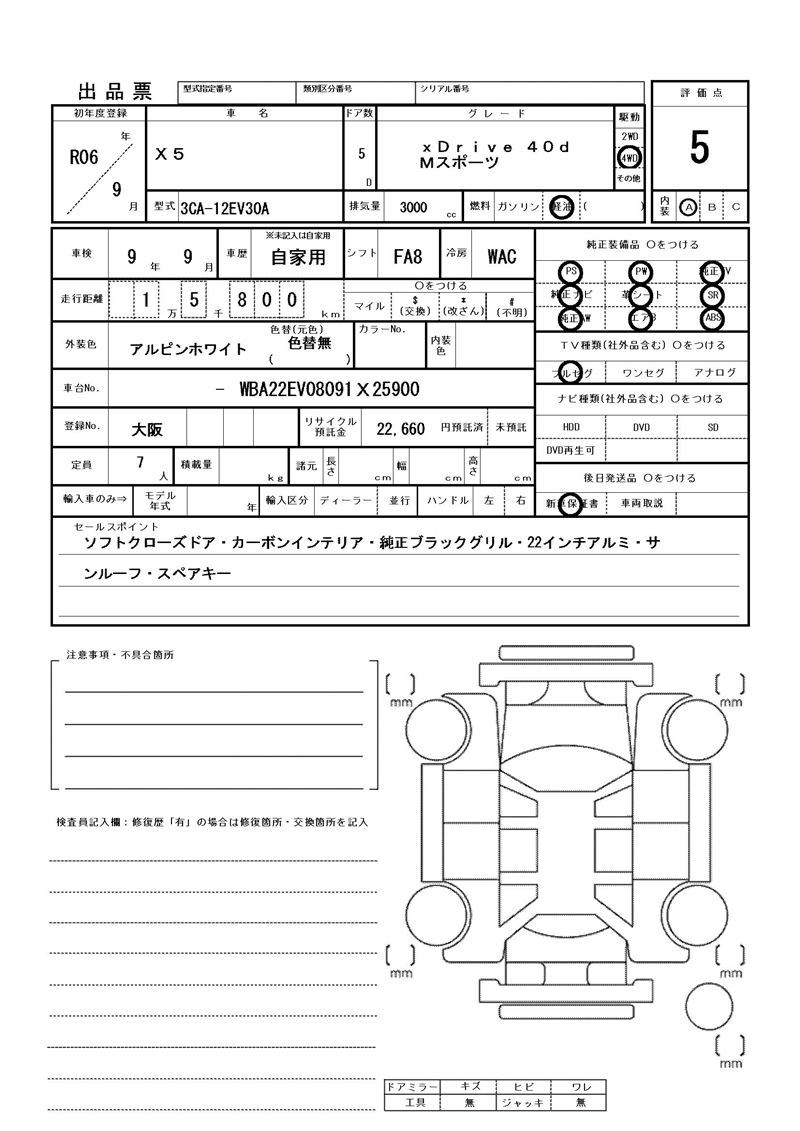 出品票 型式指定番号 類別区分番号 シリアル番号 評価点
初年度登録 車名 ドア数 グレード 駆動
R06 年 9 月 X5 5 D xDrive 40d 2WD 5
Mスポーツ 4WD
その他
型式 3CA-12EV30A 排気量 3000 cc 燃料 ガソリン 軽油 ( ) 内装 A B C
車検 9 年 9 月 車歴 ※未記入は自家用 自家用 シフト FA8 冷房 WAC 純正装備品 ○をつける
PS PW 純正TV
走行距離 1 万 5 千 8 0 0 km ○をつける 純正ナビ 革シート SR
マイル $ (交換) * (改ざん) # (不明) 純正AW エアB ABS
外装色 アルピンホワイト 色替(元色) 色替無 ( ) カラーNo. 内装色 TV種類(社外品含む) ○をつける
フルセグ ワンセグ アナログ
車台No. － WBA22EV08091X25900 ナビ種類(社外品含む) ○をつける
登録No. 大阪 リサイクル預託金 22,660 円預託済 未預託 HDD DVD SD
DVD再生可
定員 7 人 積載量 kg 諸元 長さ cm 幅 cm 高さ cm 後日発送品 ○をつける
輸入車のみ⇒ モデル年式 年 輸入区分 ディーラー 並行 ハンドル 左 右 新車保証書 車両取説
セールスポイント
ソフトクローズドア・カーボンインテリア・純正ブラックグリル・22インチアルミ・サ
ンルーフ・スペアキー
注意事項・不具合箇所
mm mm
検査員記入欄：修復歴「有」の場合は修復箇所・交換箇所を記入
mm mm
mm
ドアミラー キズ ヒビ ワレ
工具 無 ジャッキ 無